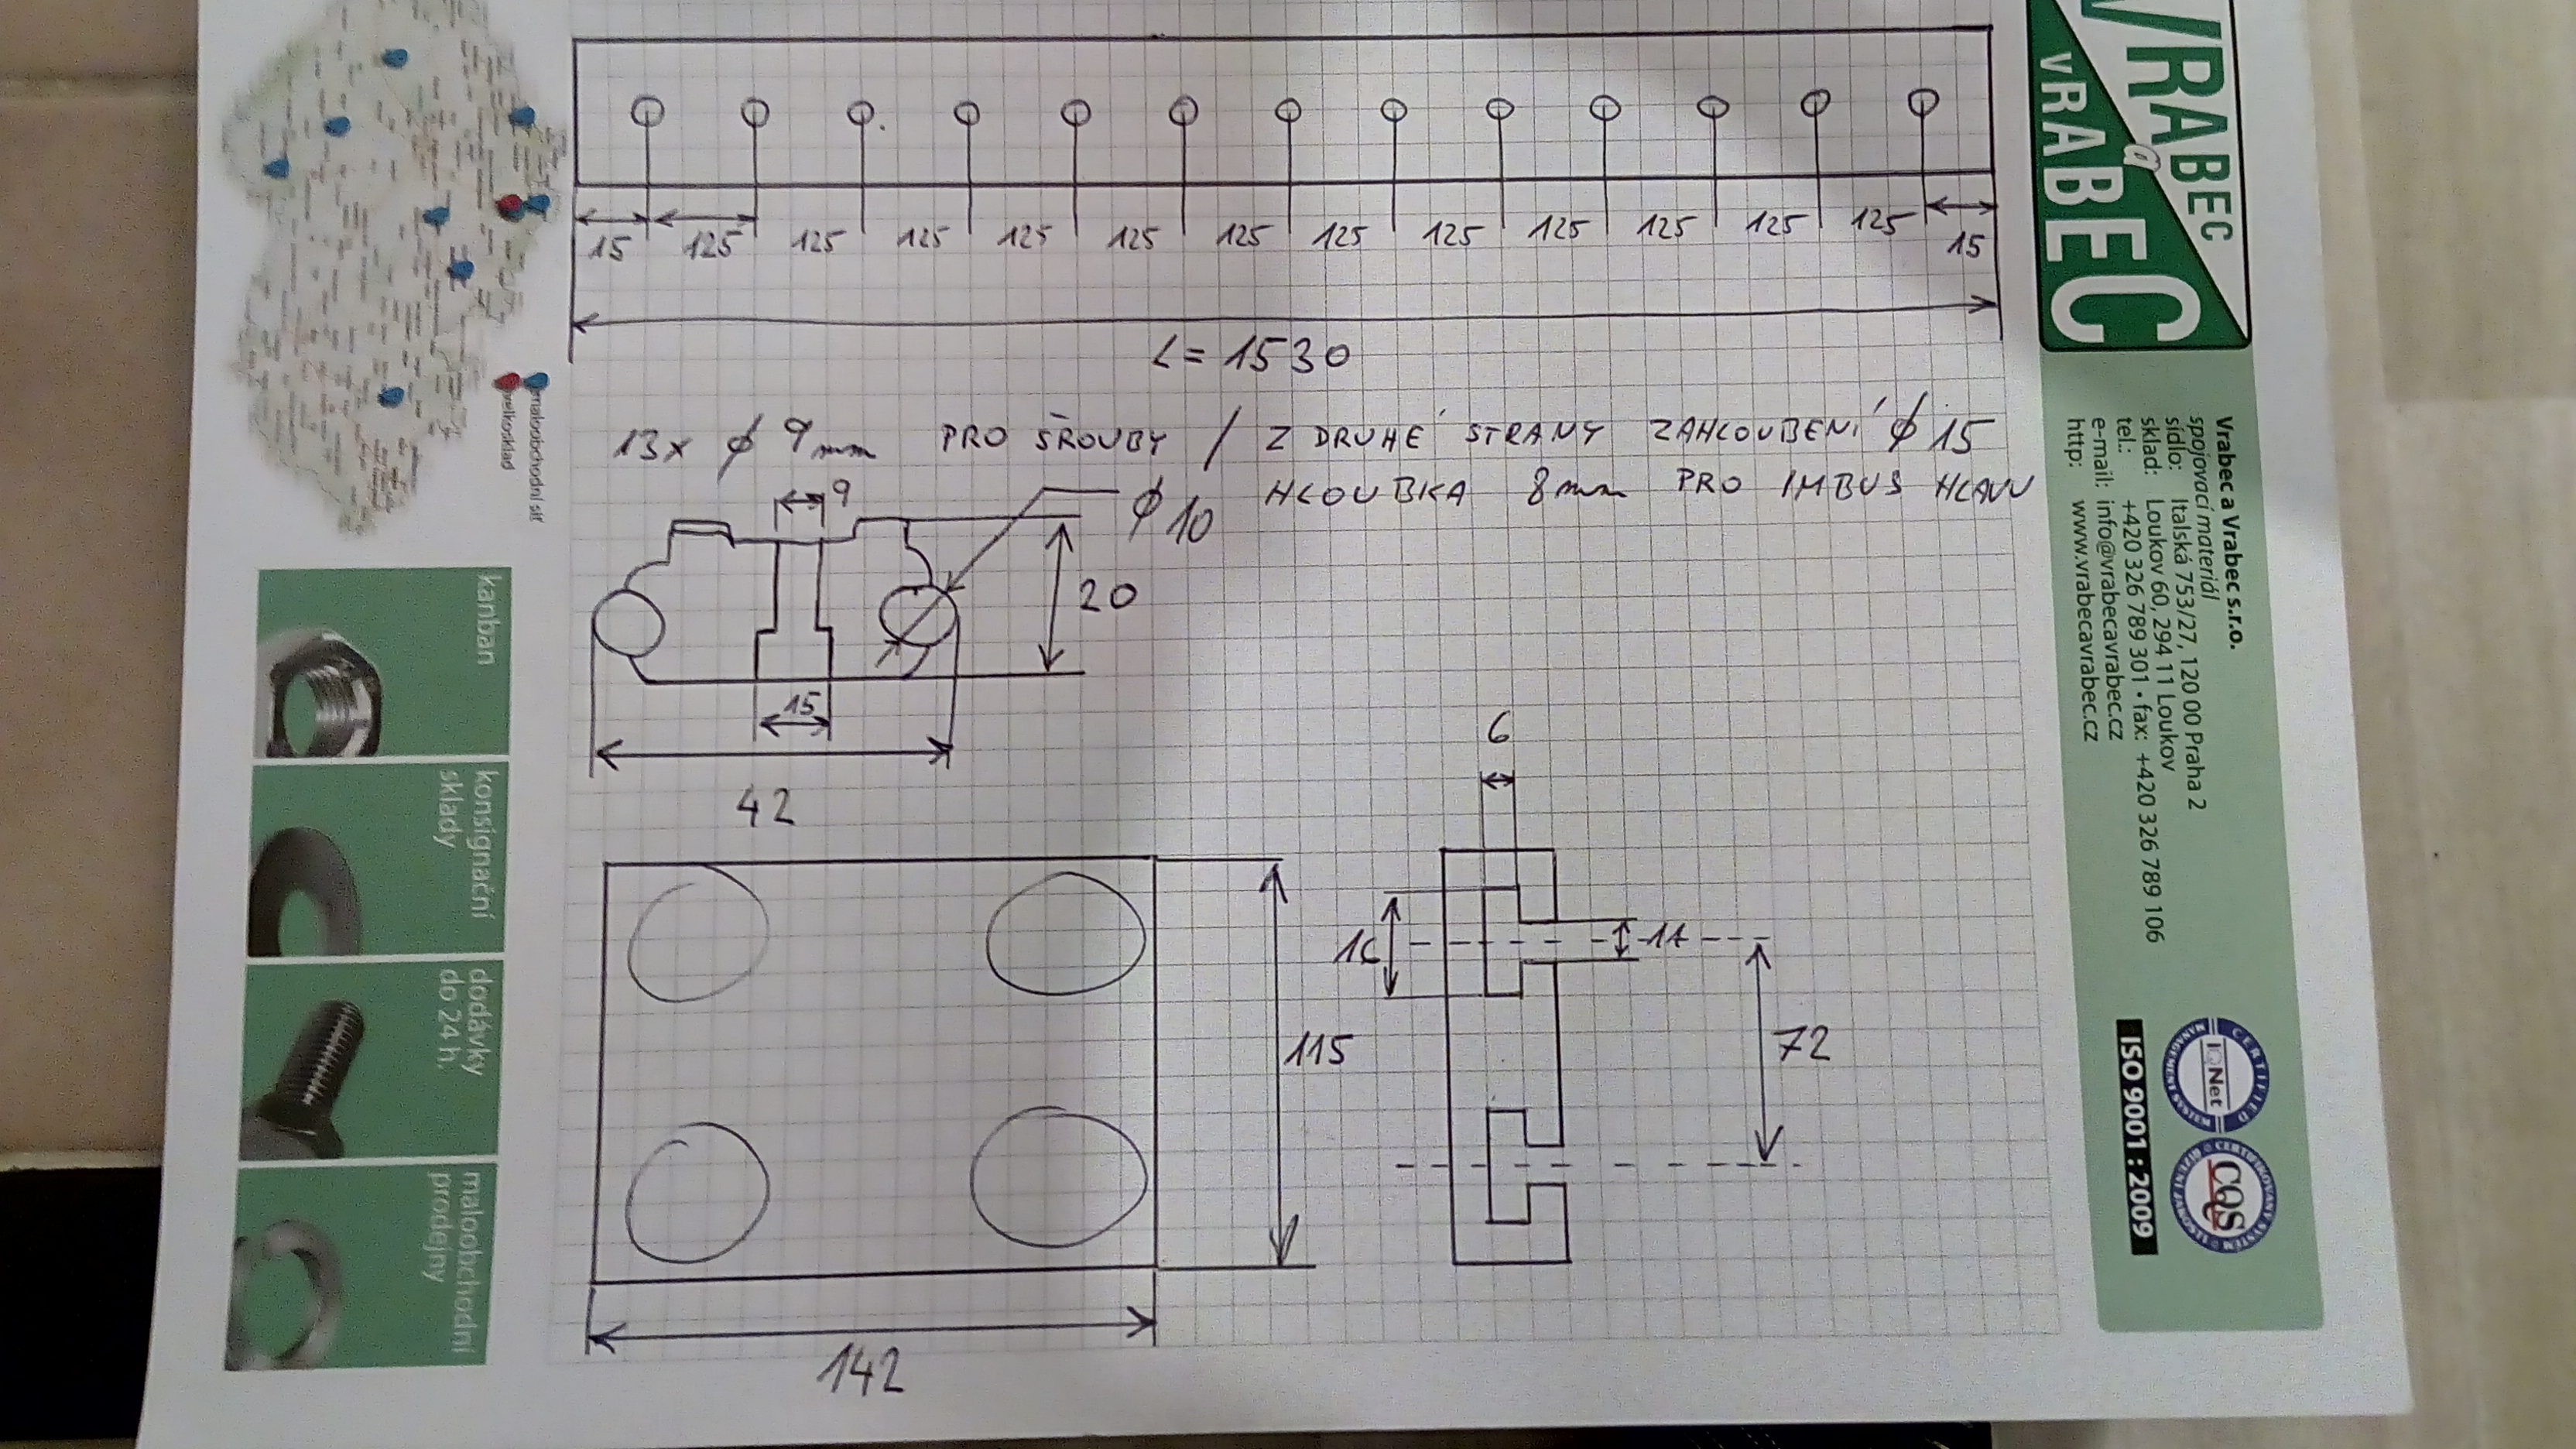 15 125 125 125 125 125 125 125 125 125 125 125 125 15
L= 1530
13x ϕ 9mm PRO ŠROUBY / Z DRUHÉ STRANY ZAHLOUBENÍ ϕ 15
HLOUBKA 8mm PRO IMBUS HLAVU
9
ϕ 10
20
15
42
6
11
72
115
142
VRABEC
a
VRABEC
Vrabec a Vrabec s.r.o.
spojovací materiál
sídlo: Italská 753/27, 120 00 Praha 2
sklad: Loukov 60, 294 11 Loukov
tel.: +420 326 789 301 • fax: +420 326 789 106
e-mail: info@vrabecavrabec.cz
http: www.vrabecavrabec.cz
ISO 9001 : 2009
CERTIFIED
IQNet
CQS
maloobchodní síť
velkosklad
kanban
konsignační
sklady
dodávky
do 24 h.
maloobchodní
prodejny